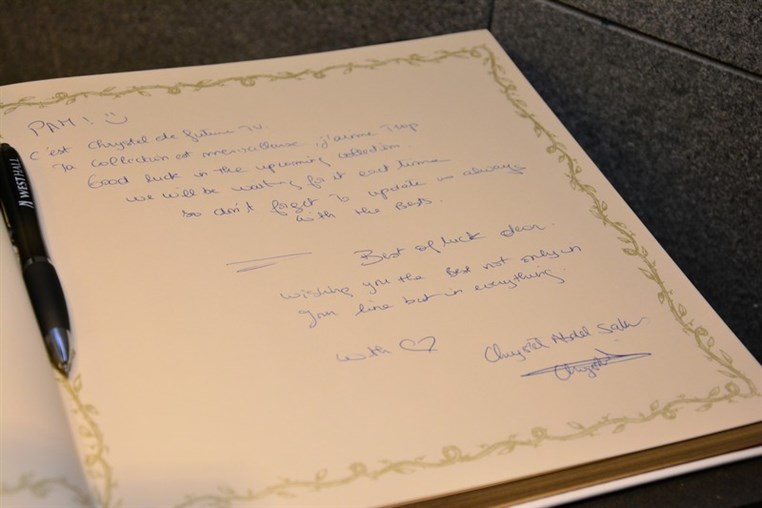 PAM ! :)
C'est Chrystel de future TV.
Ta collection est merveilleuse, j'aime Trop
Good luck in the upcoming collection.
we will be waiting for it each time
so don't forget to update us always
with the Best.
Best of luck dear.
wishing you the best not only in
your line but in everything.
with ♡
Chrystel Abdel
WESTHALL